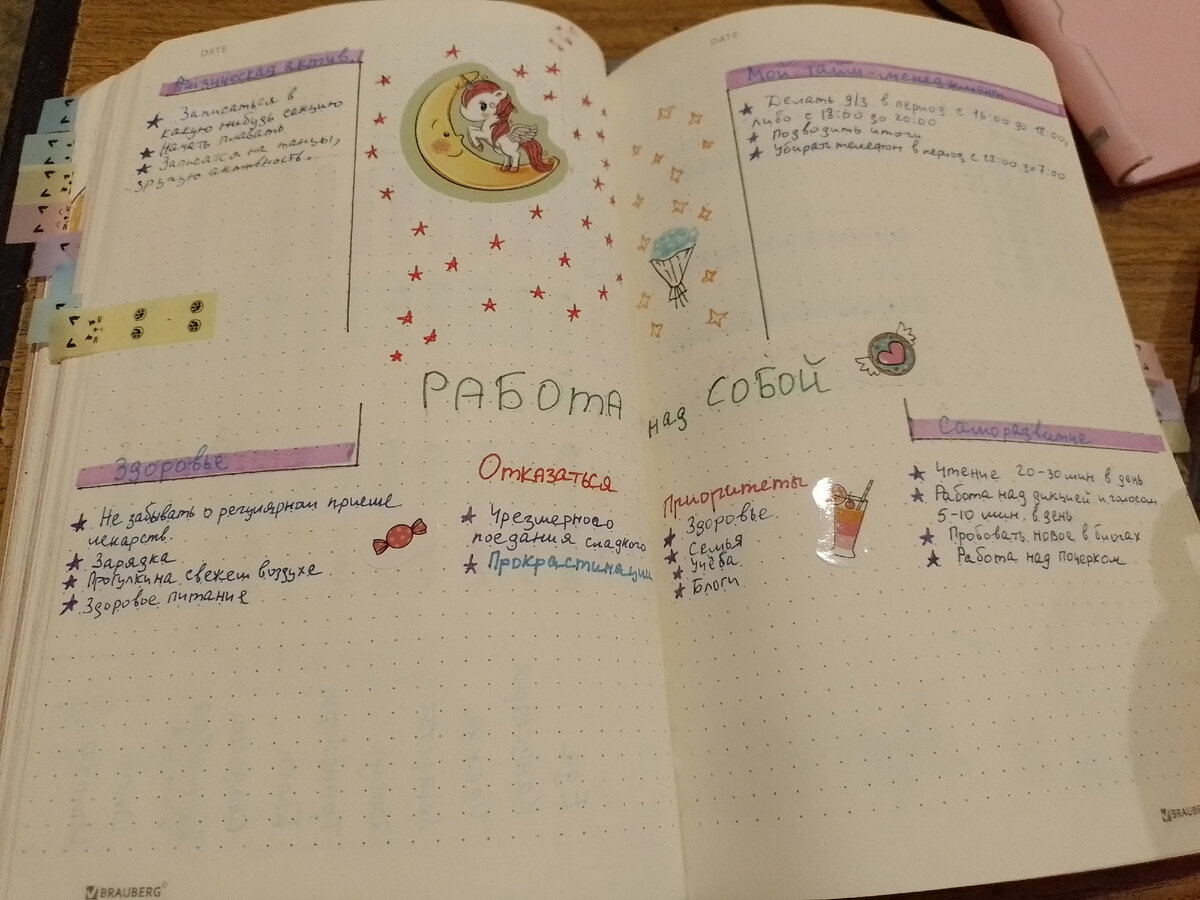 DATE
Физическая актив.
Записаться в
какую нибудь секцию
Начать плавать
Записатся на танцы,
другую активность.
DATE
Мой тайм-менеджмент
Делать д/з в период с 16:00 до 18:00,
либо с 18:00 до 20:00
Подводить итоги
Убирать телефон в период с 22:00 до 7:00
РАБОТА
над СОБОЙ
Здоровье
Не забывать о регулярном приеме
лекарств.
Зарядка
Прогулки на свежем воздухе
Здоровое питание
Отказаться
Чрезмерного
поедания сладкого
Прокрастинации
Приоритеты
Здоровье
Семья
Учёба
Блоги
Саморазвитие
Чтение 20-30 мин в день
Работа над дикцией и голосом
5-10 мин. в день
Пробовать новое в блогах
Работа над почерком
BRAUBERG
BRAUBE